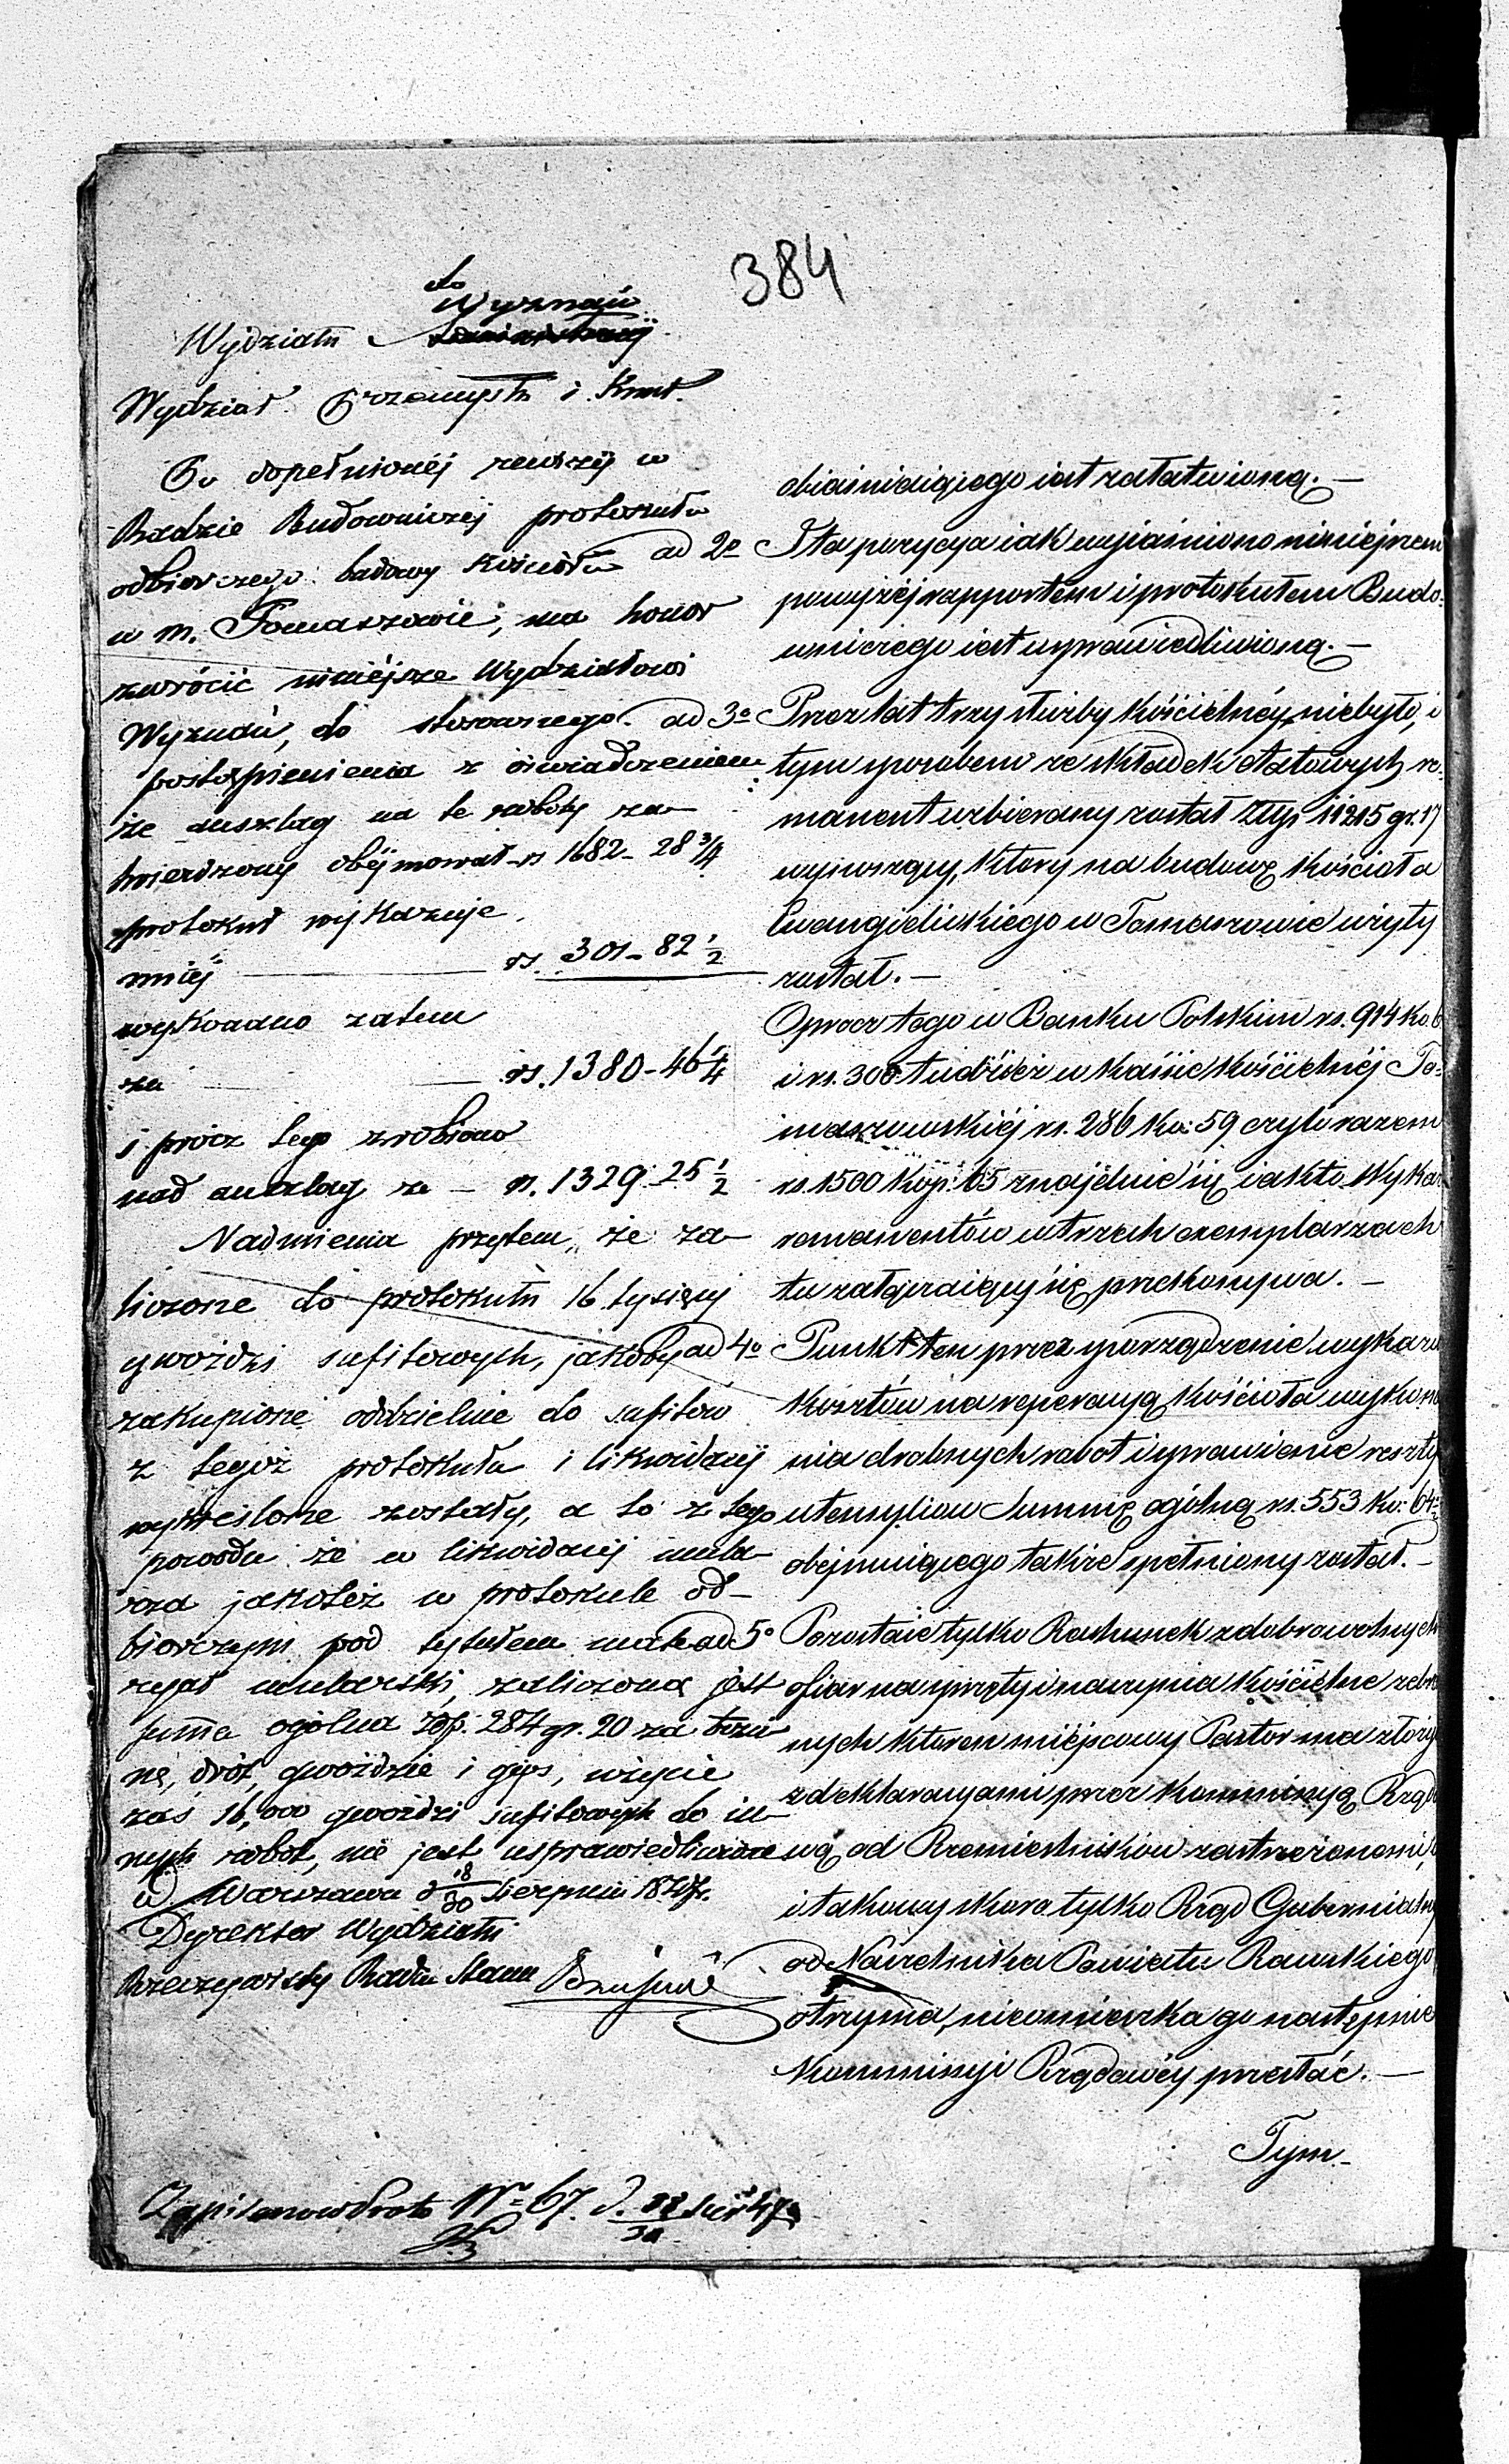 384
do
Wyznań
Wydziału
Wydział Przemysłu i Kunst.
Po dopełnionéj rewizyi w
Radzie Budowniczéj protokułu
odbiorczego budowy kościoła
w m. Tomaszowie, ma honor
zwrócić niniéjsze Wydziałowi
Wyznań, do stosownego
postąpienienia z oświadczeniem
że anszlag na te roboty za-
twierdzony obéjmował rs 1682 - 28 3/4
protokuł wykazuje
mniéj rs. 301 - 82 1/2
wykonano zatem
za rs. 1380 - 46 1/4
i prócz tego zrobiono
nad anszlag za - rs. 1329 - 25 1/2
Nadmienia przytem, że za-
liczone do protokułu 16 tysięcy
gwoździ sufitowych, jakoby
zakupione oddzielnie do sufitów
z tegoż protokułu i likwidacyi
wykreślone zostały, a to z tego
powodu że w likwidacyi mula-
rza jakotéż w protokule od-
biorczym pod tytułem mate-
ryał mularski, zaliczona jest
summa ogólna Złp. 284 gr. 20 za trzci-
nę, drót, gwoździe i gips, użycie
zaś 16,000 gwoździ sufitowych do in-
nych robót, nie jest usprawiedliwione
w Warszawie d 18/30 Sierpnia 1847 r.
Dyrektor Wydziału
Rzeczywisty Radca Stanu
Zapisano w Prot. Nr 67. d. 18/30 Sier 47
obiaśniaiącego iest załatwioną. -
ad 2o I ta pozycya iak wyiaśniono niniéjszem
powyżéj rapportem i protokułem Budo-
wniczego iest usprawiedliwioną. -
ad 3o Przez lat trzy służby Kościelnéy niebyło, i
tym sposobem ze składek etatowych re-
manent uzbierany został Złp. 11215 gr. 17
wynoszący, który na budowę Kościoła
Ewangielickiego w Tomaszowie użyty
został. -
Oprócz tego w Banku Polskim rs. 914 ko. 6
i rs. 300 tudzież w Kassie Kościelnéj To-
maszowskiéj rs. 286 ko: 59 czyli razem
rs. 1500 kop. 65 znajduie się iak to Wykaz
remanentów w trzech exemplarzach
tu załączaiący się przekonywa. -
ad 4o Punkt ten przez sporządzenie wykazu
kosztów na reperacyą Kościoła wykona-
nia drobnych robot i sprawienie reszty
utensyliow Summę ogólną rs. 553 ko: 64
obejmuiącego także spełniony został. -
ad 5o Pozostaie tylko Rachunek z dobrowolnych
ofiar na sprzęty i naczynia Kościelne zebra
nych któren miéjscowy Pastor ma złożyć
z deklaracyami przez Kommissyą Rządo
wą od Rzemieślników zastrzeżonemi,
i takowy skoro tylko Rząd Gubernialny
od Naczelnika Powiatu Rawskiego
otrzyma, nieomieszka go następnie
Kommissyi Rządowéy przesłać. -
Tym-